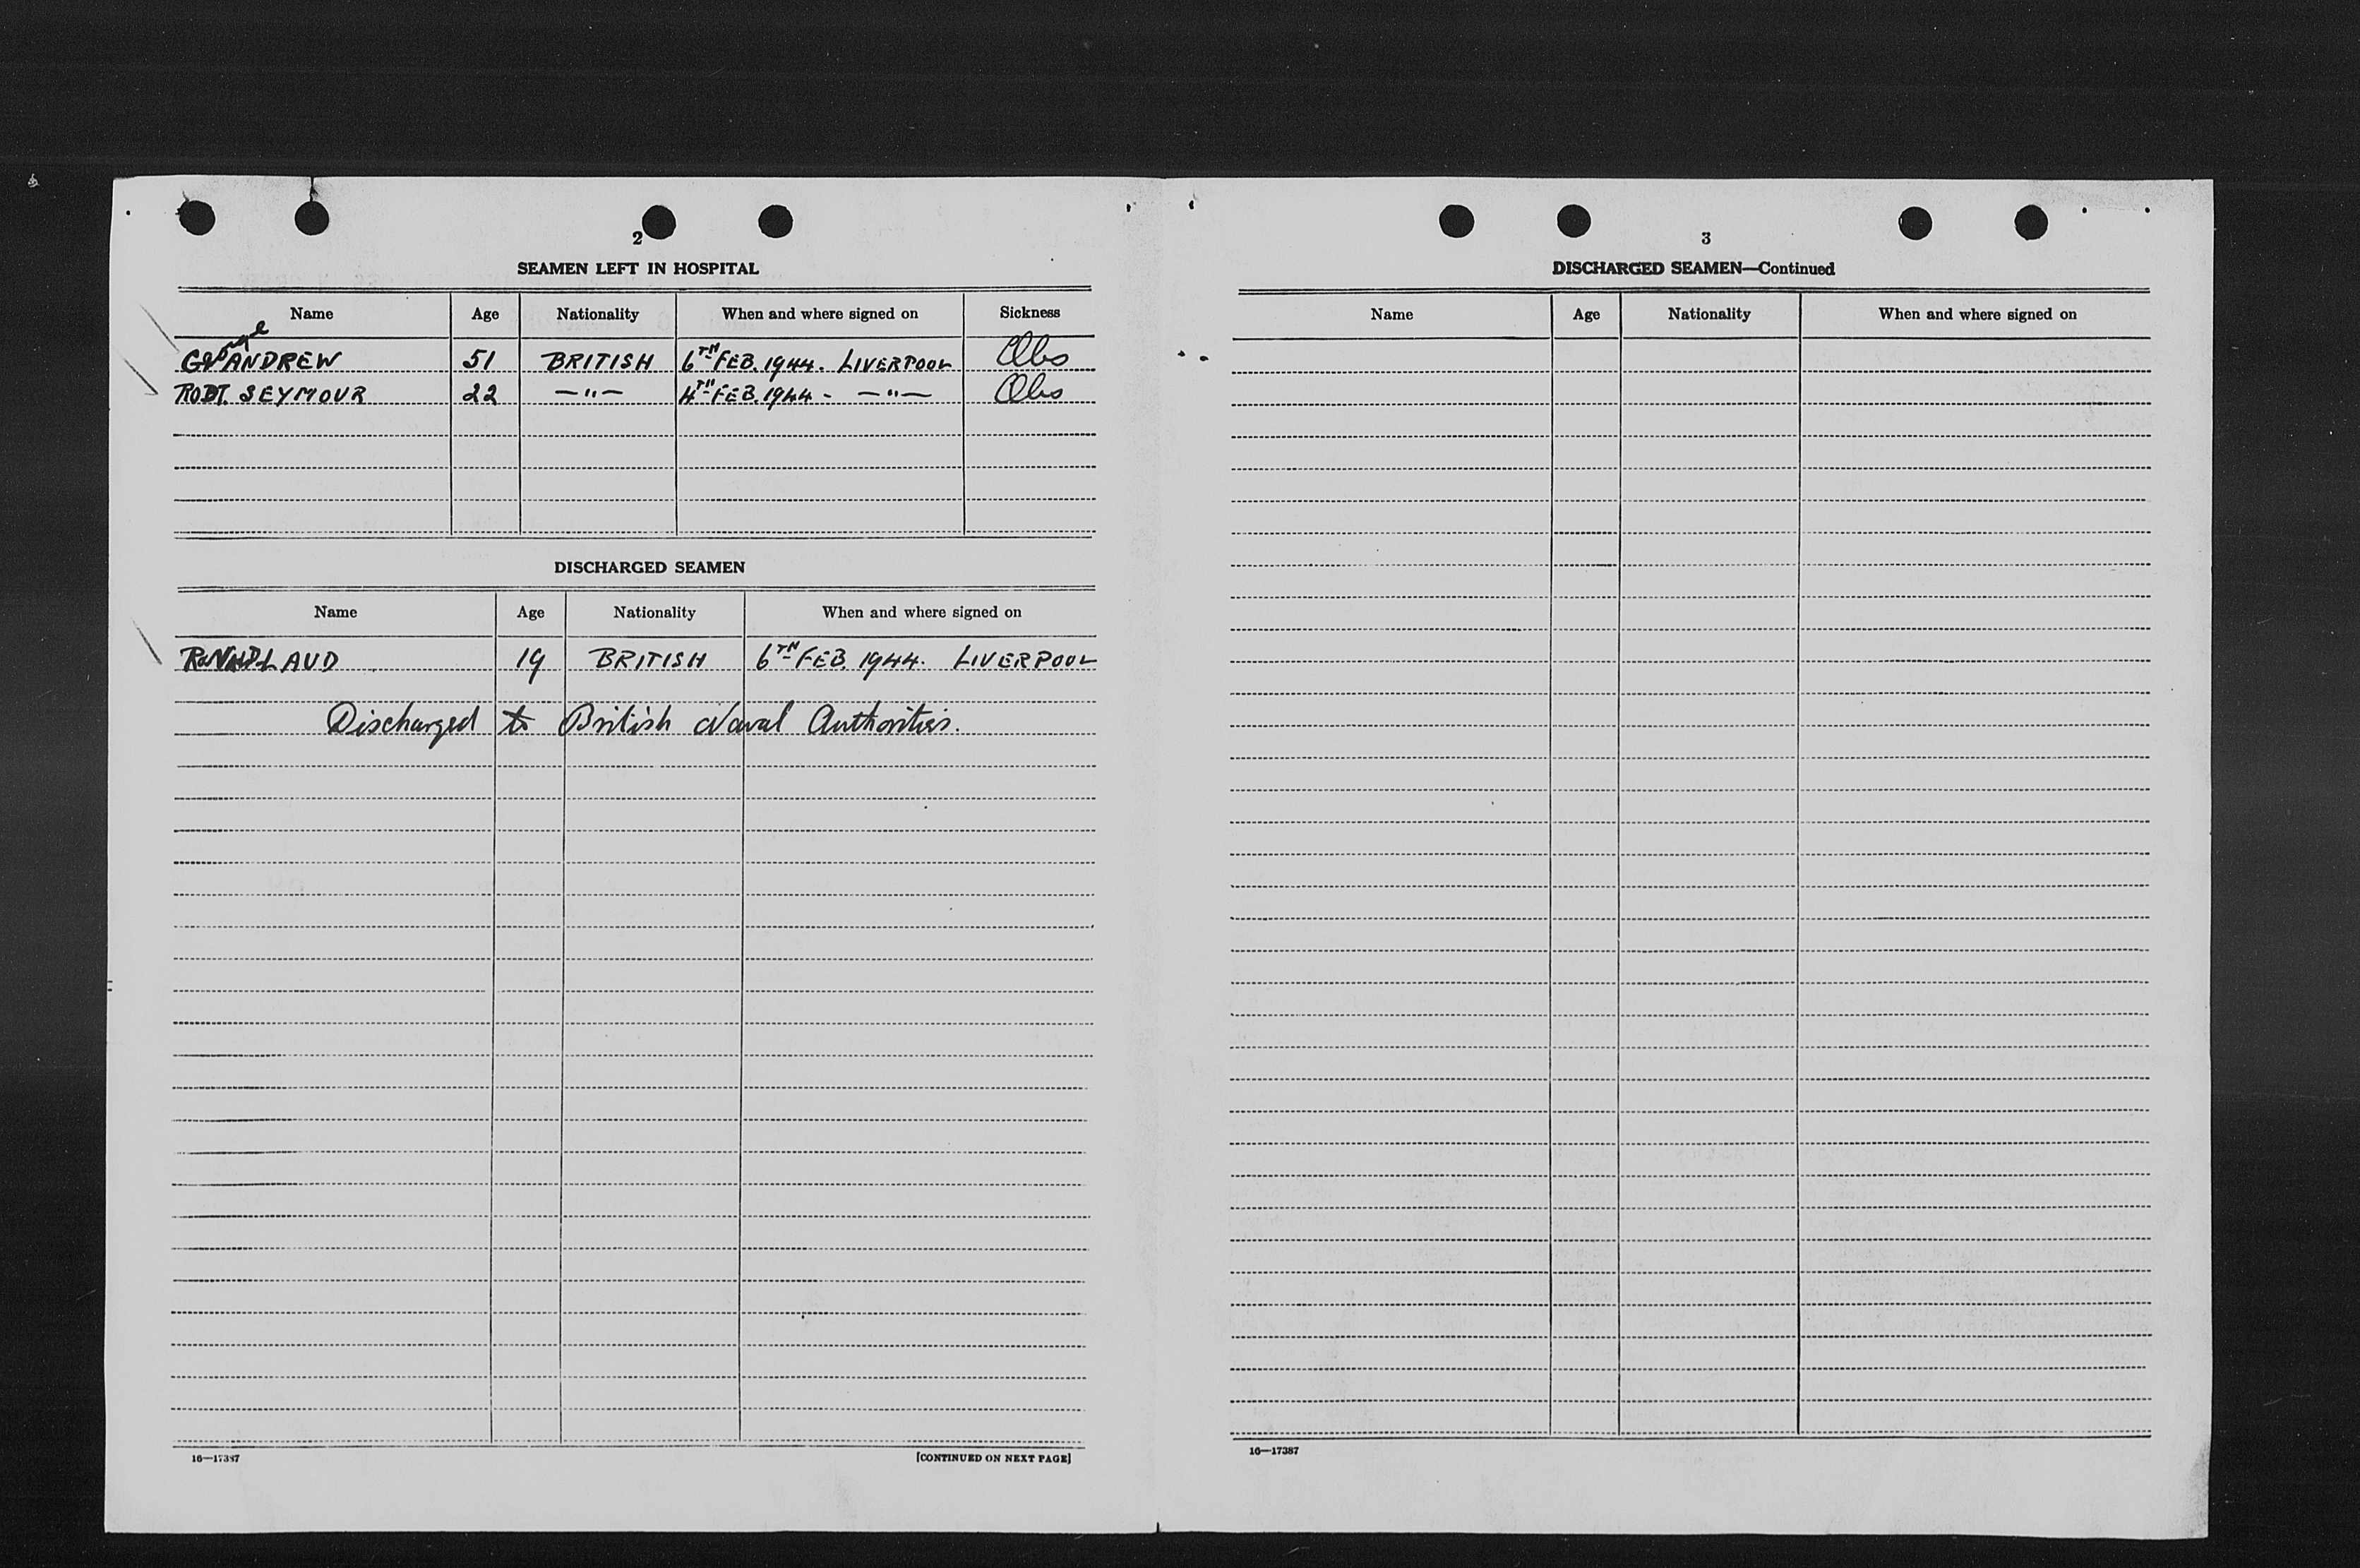 2
SEAMEN LEFT IN HOSPITAL
Name Age Nationality When and where signed on Sickness
George ANDREW 51 BRITISH 6TH FEB. 1944. LIVERPOOL Obs
ROBT. SEYMOUR 22 —"— 4TH FEB. 1944 - —"— Obs
DISCHARGED SEAMEN
Name Age Nationality When and where signed on
RONALD LAUD 19 BRITISH 6TH FEB. 1944. LIVERPOOL
Discharged to British Naval Authorities.
16—17387
[CONTINUED ON NEXT PAGE]
3
DISCHARGED SEAMEN—Continued
Name Age Nationality When and where signed on
16—17387